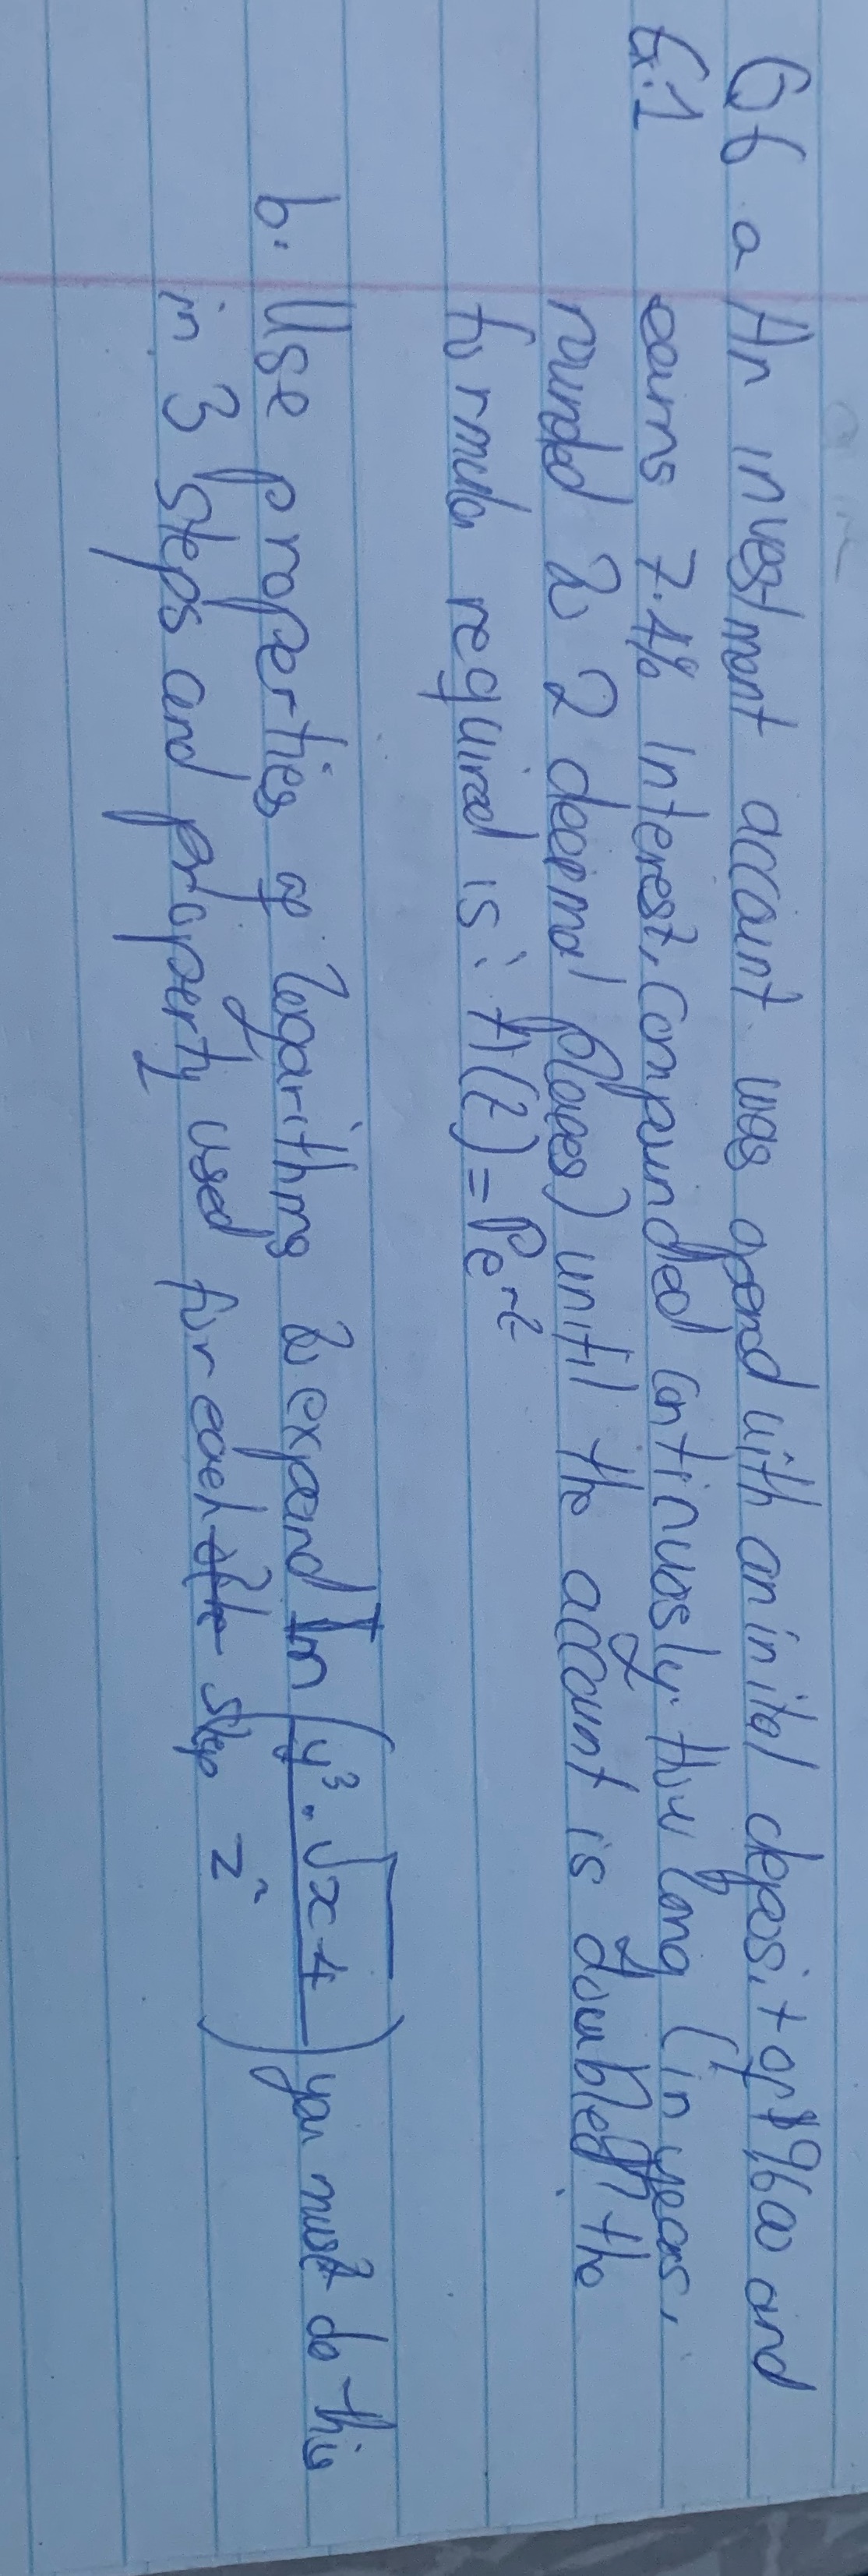 Q6 a An investment account was opend with an inital deposit of $9600 and
6.1 earns 7.4% interest, compounded continuosly. How long (in years,
rounded to 2 decimal places) until the account is doubled? the
formula required is: A(t) = Pe^rt
b. Use properties of logarithms to expand ln (y³ · √x-4 / z^) you must do this
in 3 steps and property used for each step